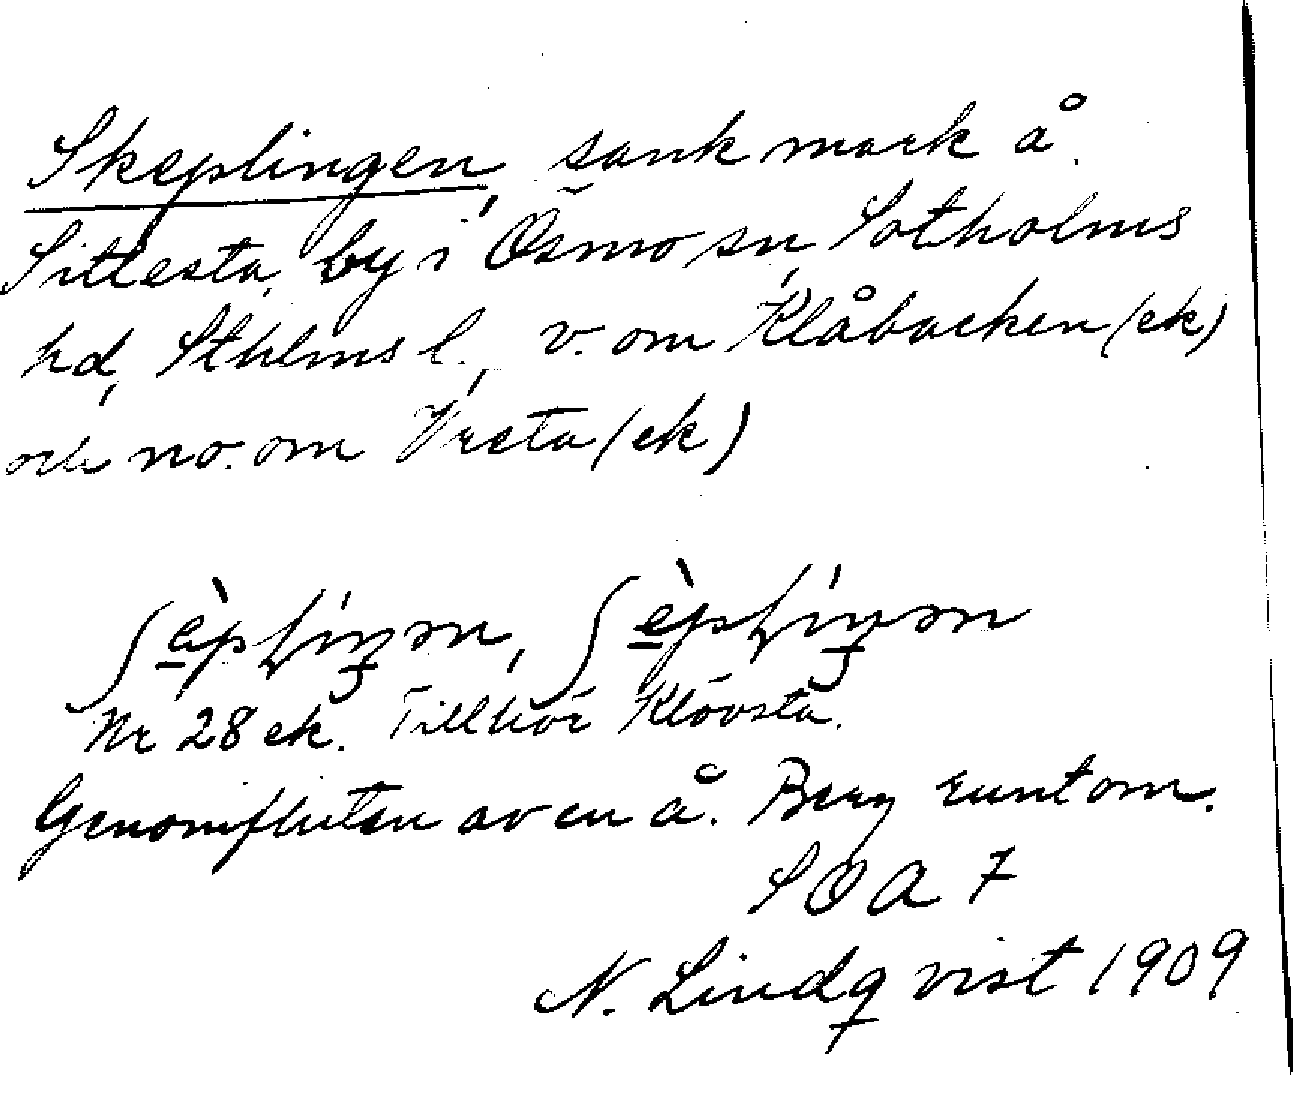 Skeplingen, sank mark å
Sittesta, by i Ösmo sn, Sotholms
hd, Sthlms l., v. om Klåbacken (ek)
och no. om Vreta (ek)
Nr 28 ek. Tillhör Klövsta.
Genomfluten av en å. Berg runtom.
SOA 7
N. Lindqvist 1909